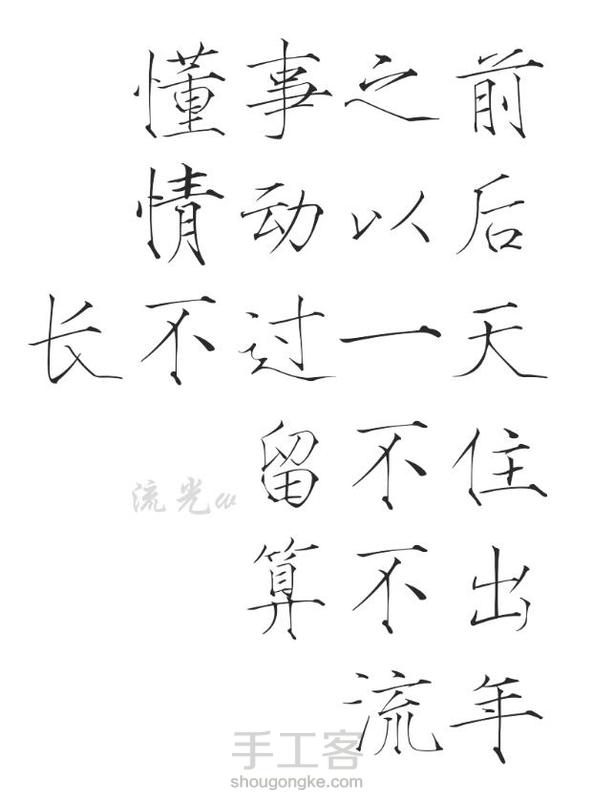 懂事之前
情动以后
长不过一天
留不住
流光
算不出
流年
手工客
shougongke.com